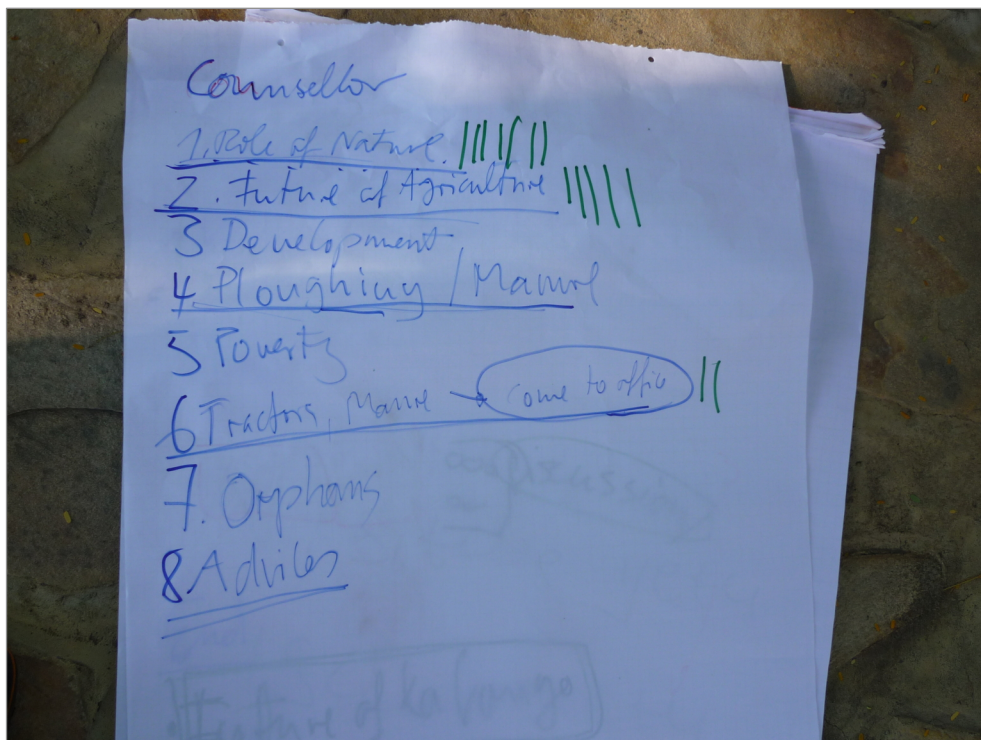 Counsellor
1. Role of Nature.
2. Future of Agriculture
3 Development
4 Ploughing / Manure
5 Poverty
6 Tractors, Manure → come to office
7. Orphans
8 Advices